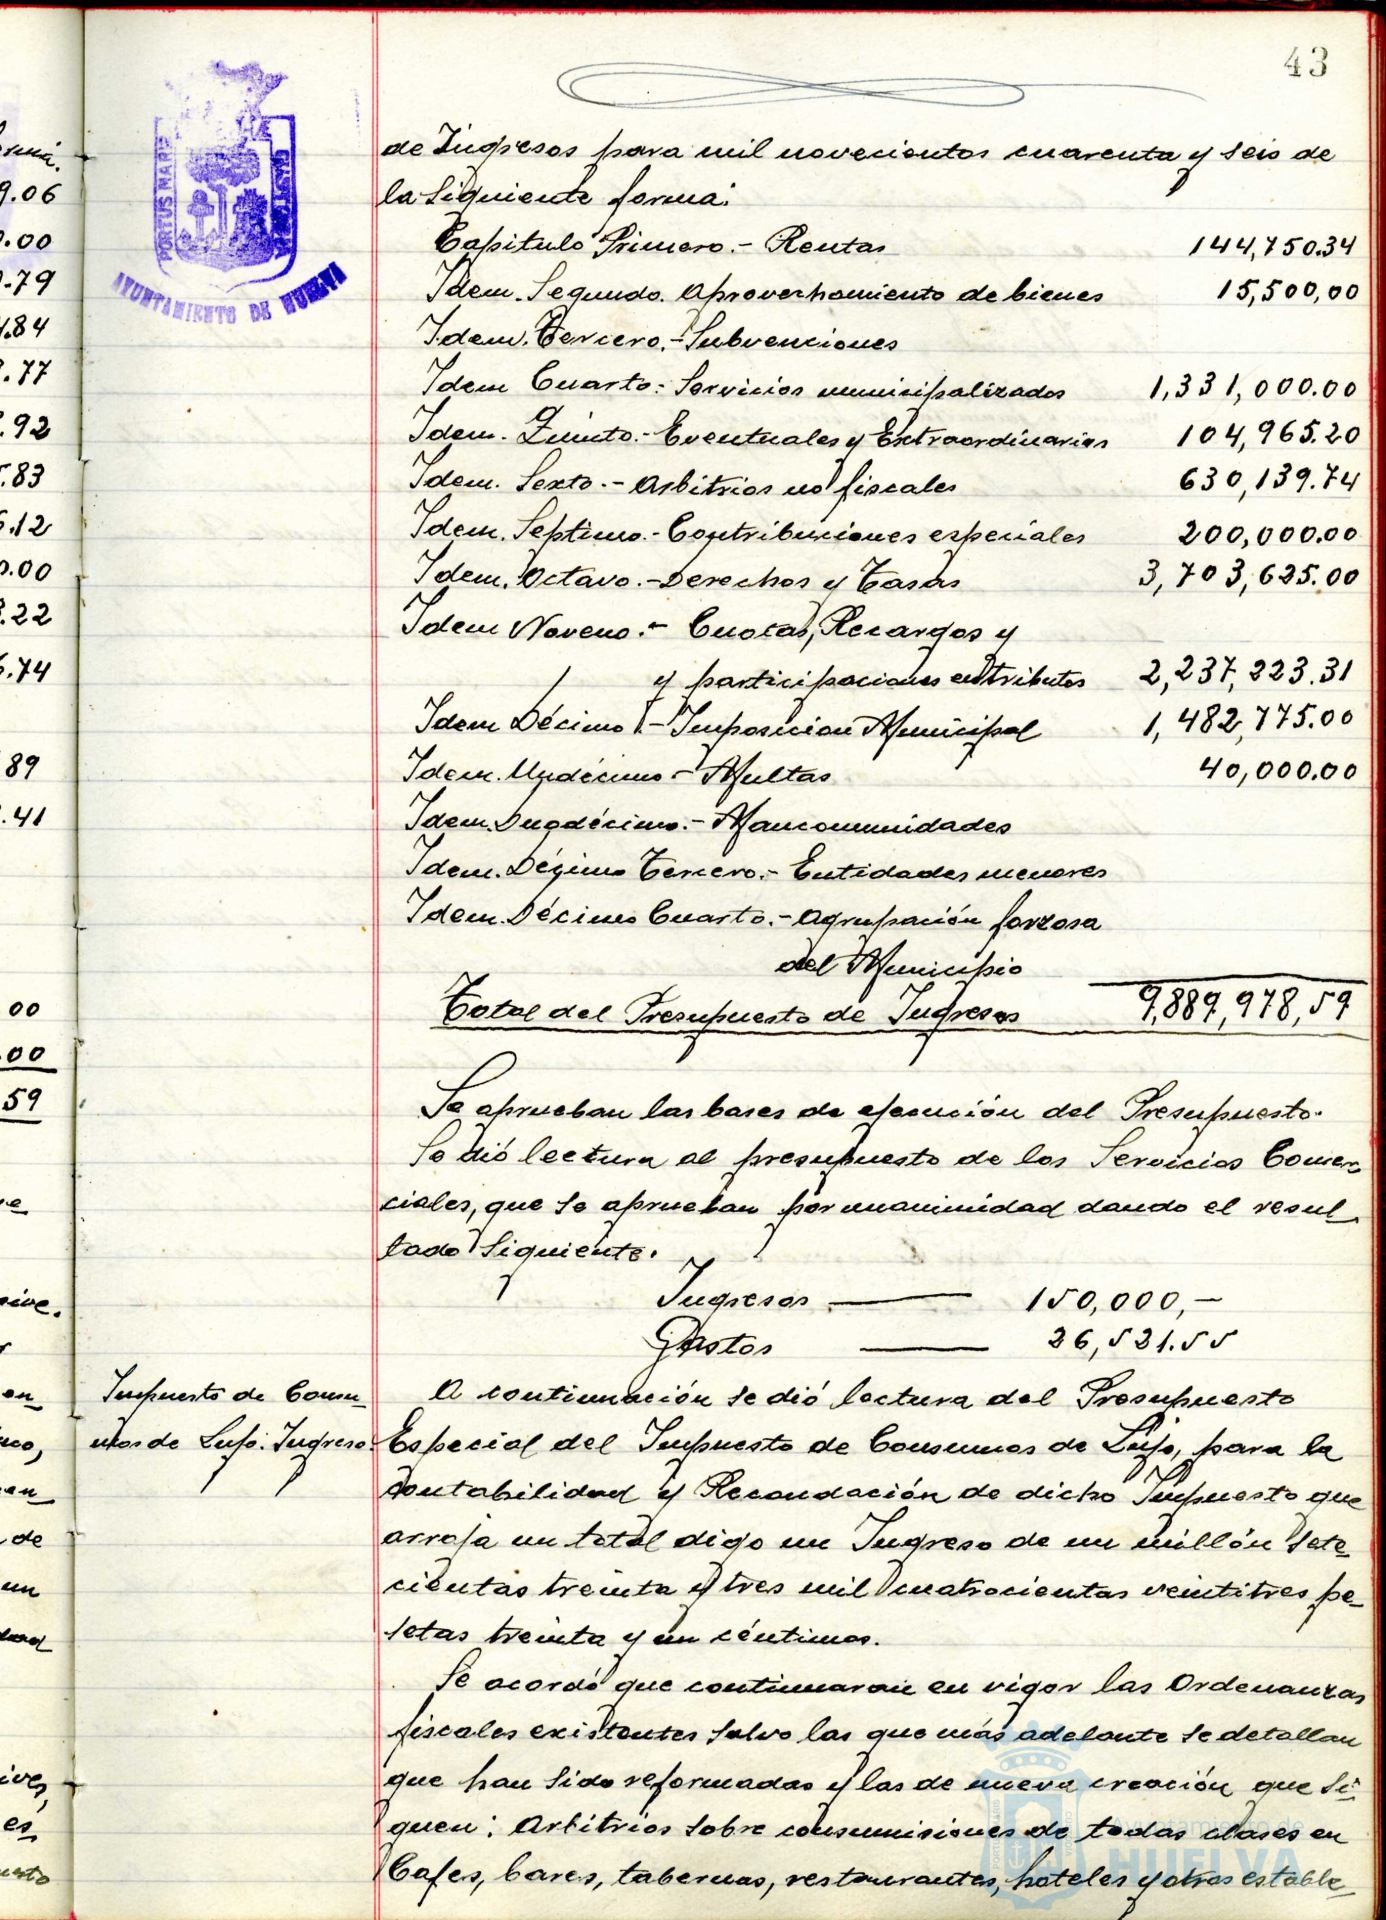 43
PORTUS MARIS
AYUNTAMIENTO DE HUELVA
de Ingresos para mil novecientos cuarenta y seis de
la siguiente forma:
Capitulo Primero.- Rentas 144,750.34
Idem. Segundo. Aprovechamiento de bienes 15,500,00
Idem. Tercero.- Subvenciones
Idem Cuarto.- Servicios municipalizados 1,331,000.00
Idem. Quinto.- Eventuales y Extraordinarios 104,965.20
Idem. Sexto.- Arbitrios no fiscales 630,139.74
Idem. Septimo.- Contribuciones especiales 200,000.00
Idem. Octavo.- Derechos y Tasas 3,703,625.00
Idem Noveno.- Cuotas, Recargos y
y participaciones en tributos 2,237,223.31
Idem Décimo.- Imposicion Municipal 1,482,775.00
Idem. Undécimo.- Multas 40,000.00
Idem. Duodécimo.- Mancomunidades
Idem. Décimo Tercero.- Entidades menores
Idem. Décimo Cuarto.- Agrupación forzosa
del Municipio
Total del Presupuesto de Ingresos 9,889,978,59
Se aprueban las bases de ejecución del Presupuesto.
Se dió lectura al presupuesto de los Servicios Comer-
ciales, que se aprueban por unanimidad dando el resul-
tado siguiente.
Ingresos — 150,000,-
Gastos — 26,521.55
Impuesto de Consu-
mos de Lujo. Ingreso.
A continuación se dió lectura del Presupuesto
Especial del Impuesto de Consumos de Lujo, para la
contabilidad y Recaudación de dicho Impuesto que
arroja un total digo un Ingreso de un millón sete-
cientas treinta y tres mil cuatrocientas veintitres pe-
setas treinta y un céntimos.
Se acordó que continuaran en vigor las Ordenanzas
fiscales existentes salvo las que más adelante se detallan
que han sido reformadas y las de nueva creación que si-
guen: Arbitrios sobre consumisiones de todas clases en
Cafes, bares, tabernas, restaurantes, hoteles y otros estable-
Ayuntamiento de
HUELVA
9.06
.00
.79
.84
.77
.92
.83
.12
.00
.22
.74
89
.41
00
.00
59
de
un